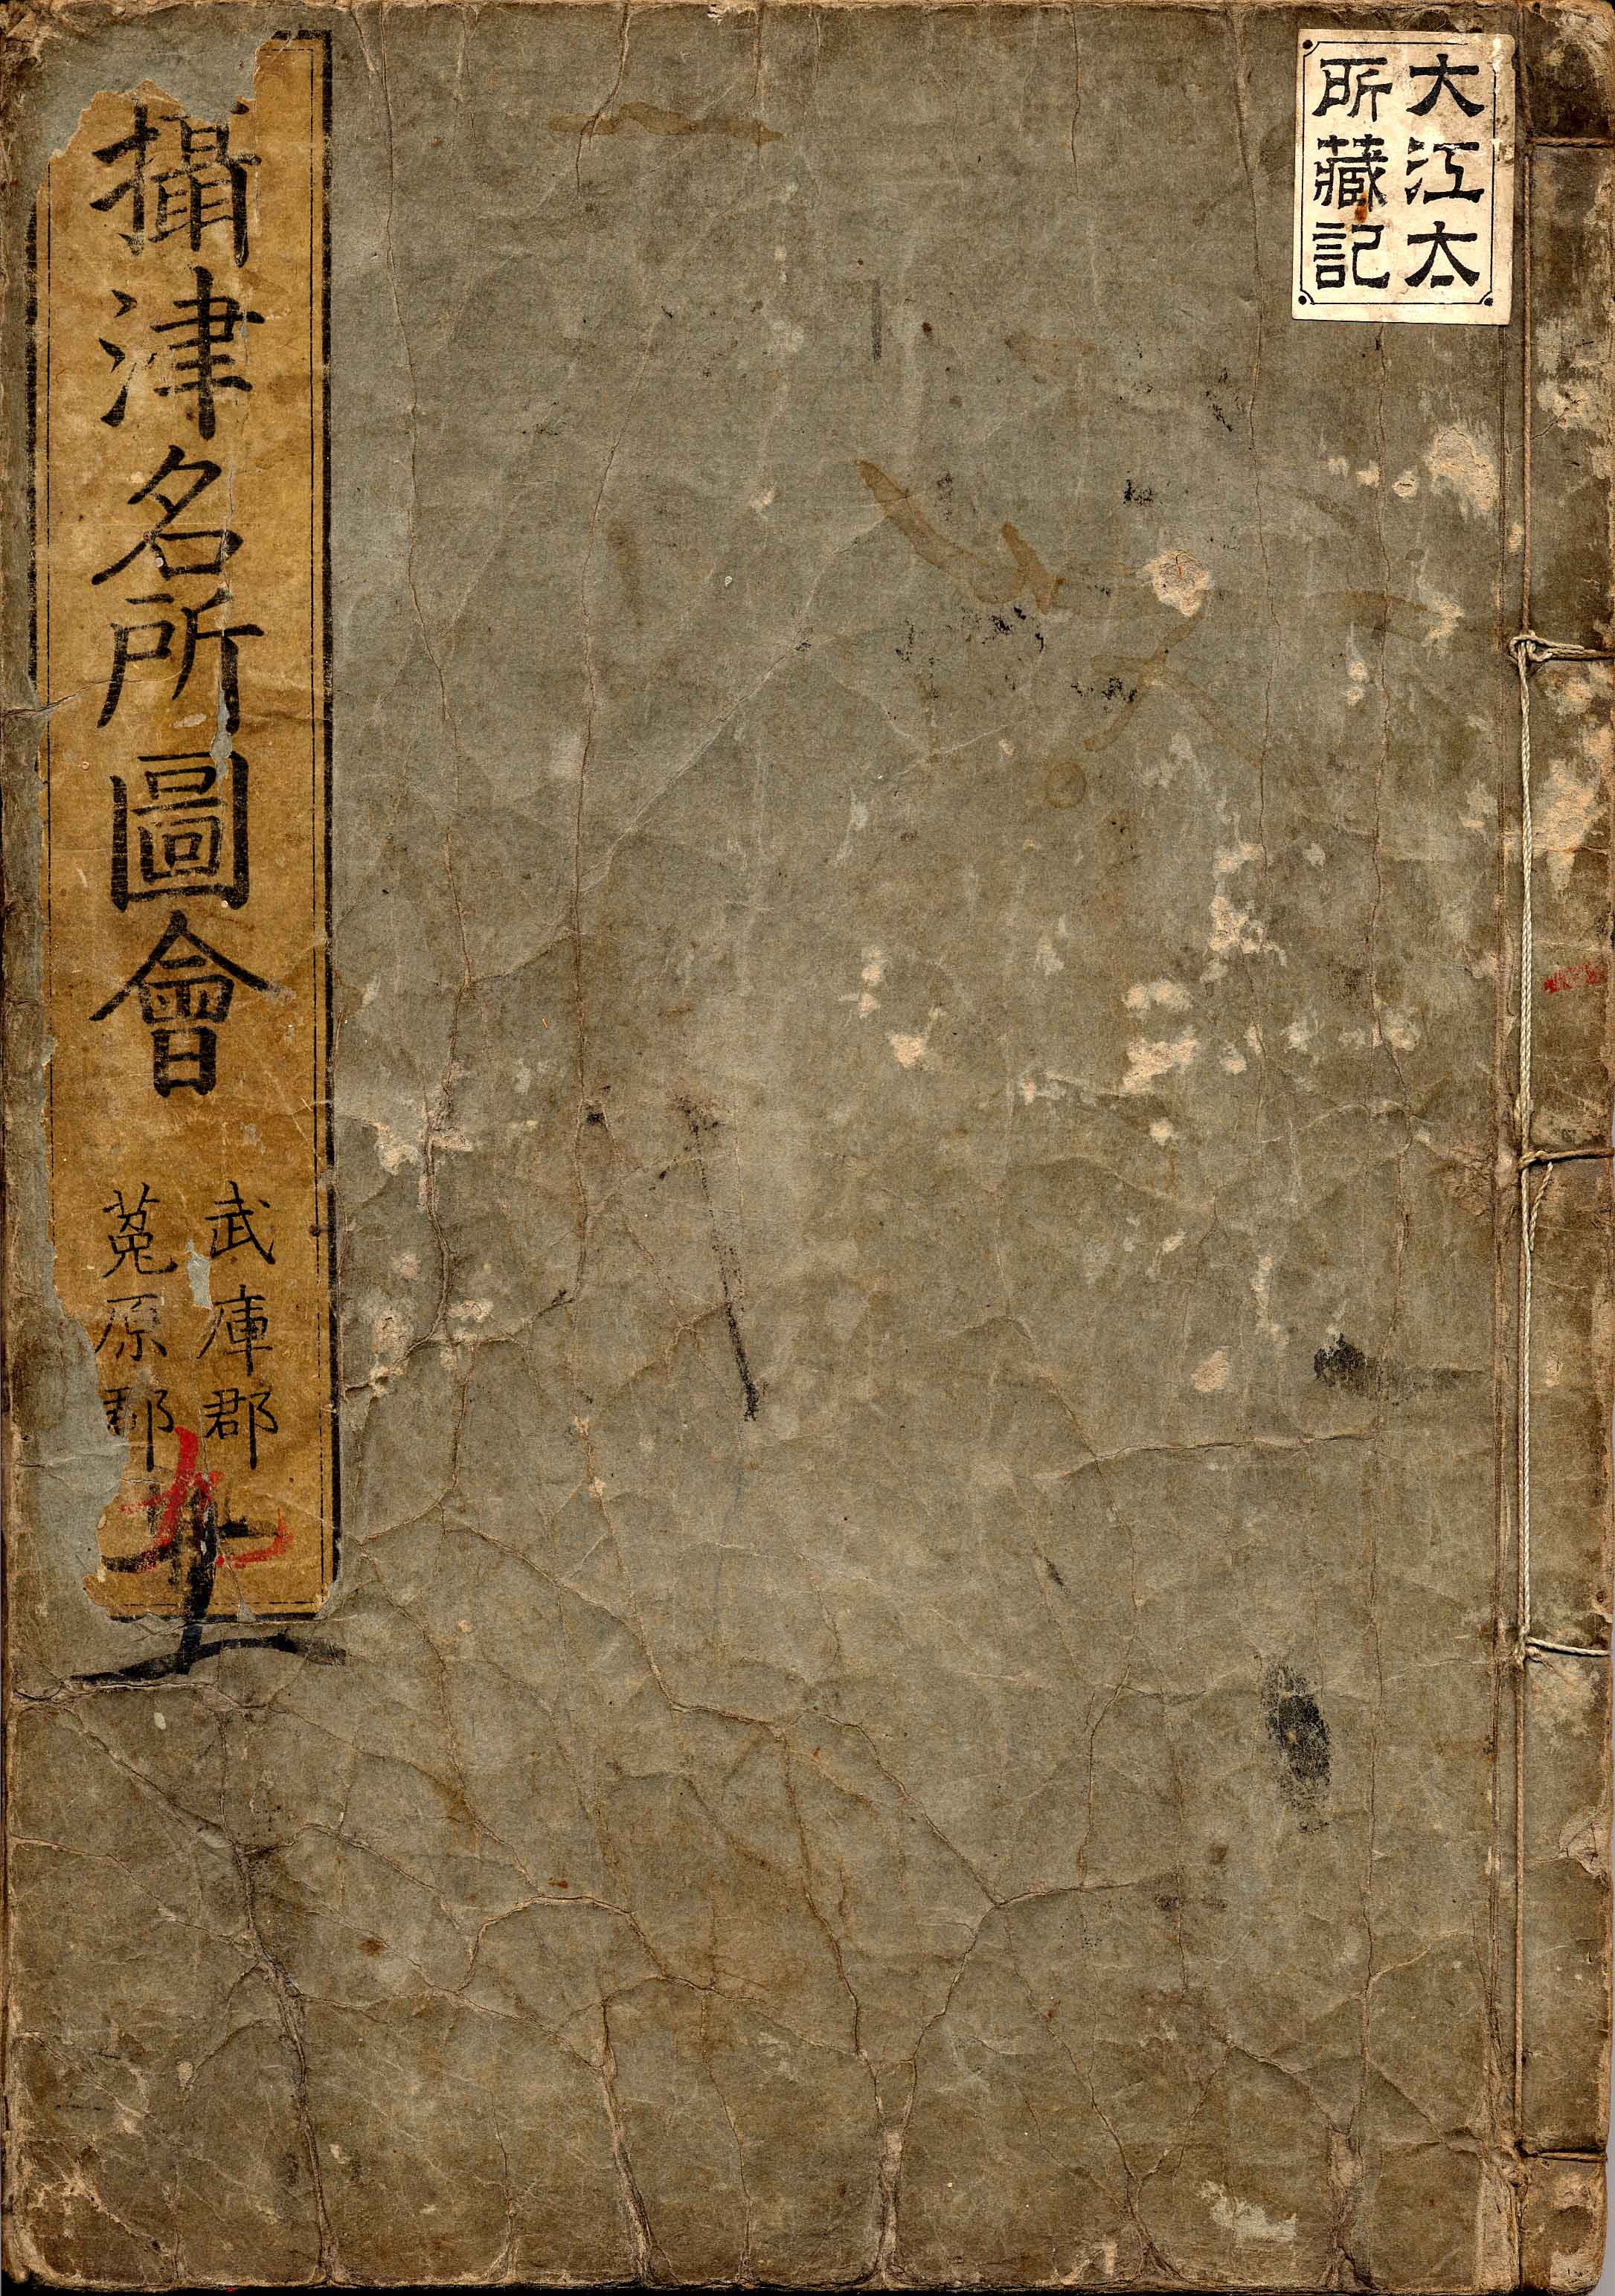 大江太
所藏記
攝津名所圖會
武庫郡
菟原郡
九